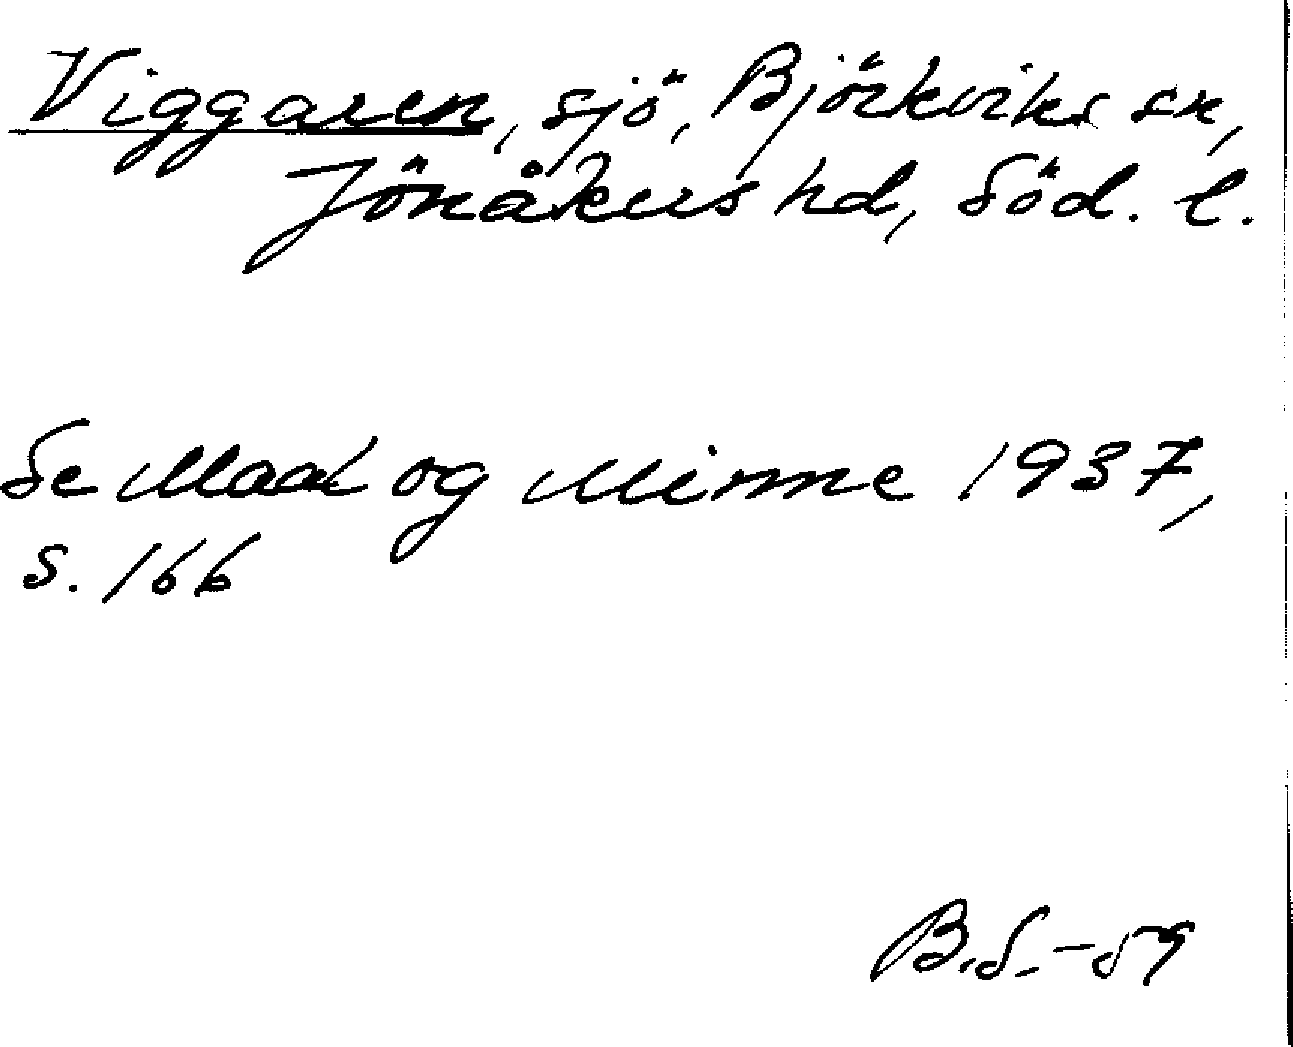 Viggaren, sjö, Björkviks sn,
Jönåkers hd, Söd. l.
Se Maal og Minne 1937,
s. 166
B.S.-59